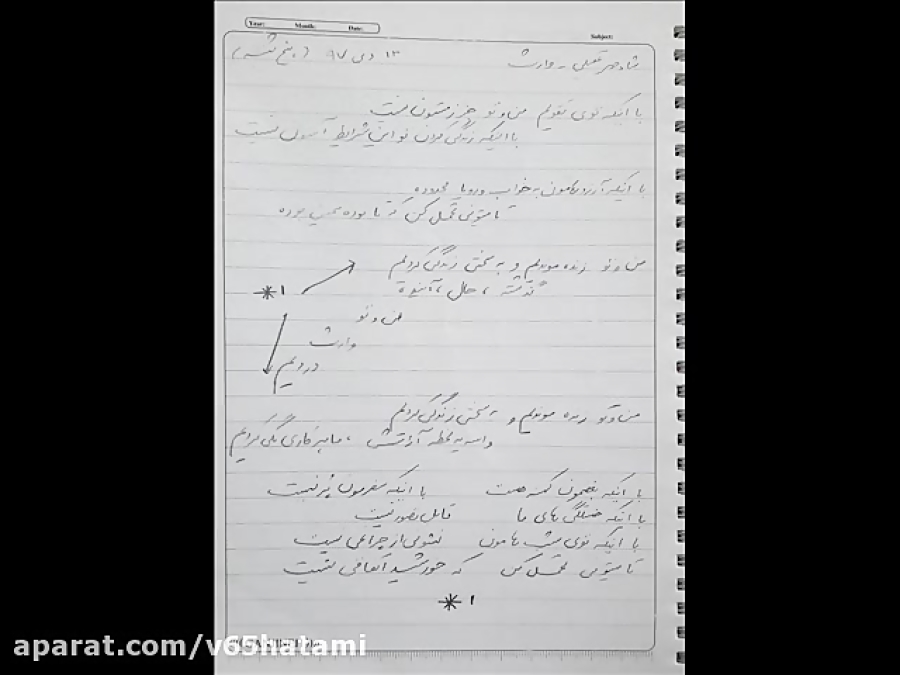 Year: Month: Date:
Subject:
شاهرخ تقسلی - وارث ۱۳ دی ۹۷ (پنج شنبه)
با اینکه توی تقویم من و تو جز زمستون نیست
با اینکه زندگی کردن تو این شرایط آسون نیست
با اینکه آرزوهامون به خواب و رویا محدوده
تا میتونی تحمل کن که تا بوده همین بوده
من و تو زنده موندیم و به سختی زندگی کردیم
گذشته، حال، آینده
*۱
من و تو
وارث
دردیم
من و تو زنده موندیم و به سختی زندگی کردیم
واسه یه لحظه آرامش، ما هر کاری بگی کردیم
با اینکه بغضمون کهنه ست با اینکه سفرمون پر نیست
با اینکه خستگی های ما قابل تصور نیست
با اینکه توی شب هامون نشونی از چراغی نیست
تا میتونی تحمل کن که خورشید اتفاقی نیست
*۱
aparat.com/v65hatami